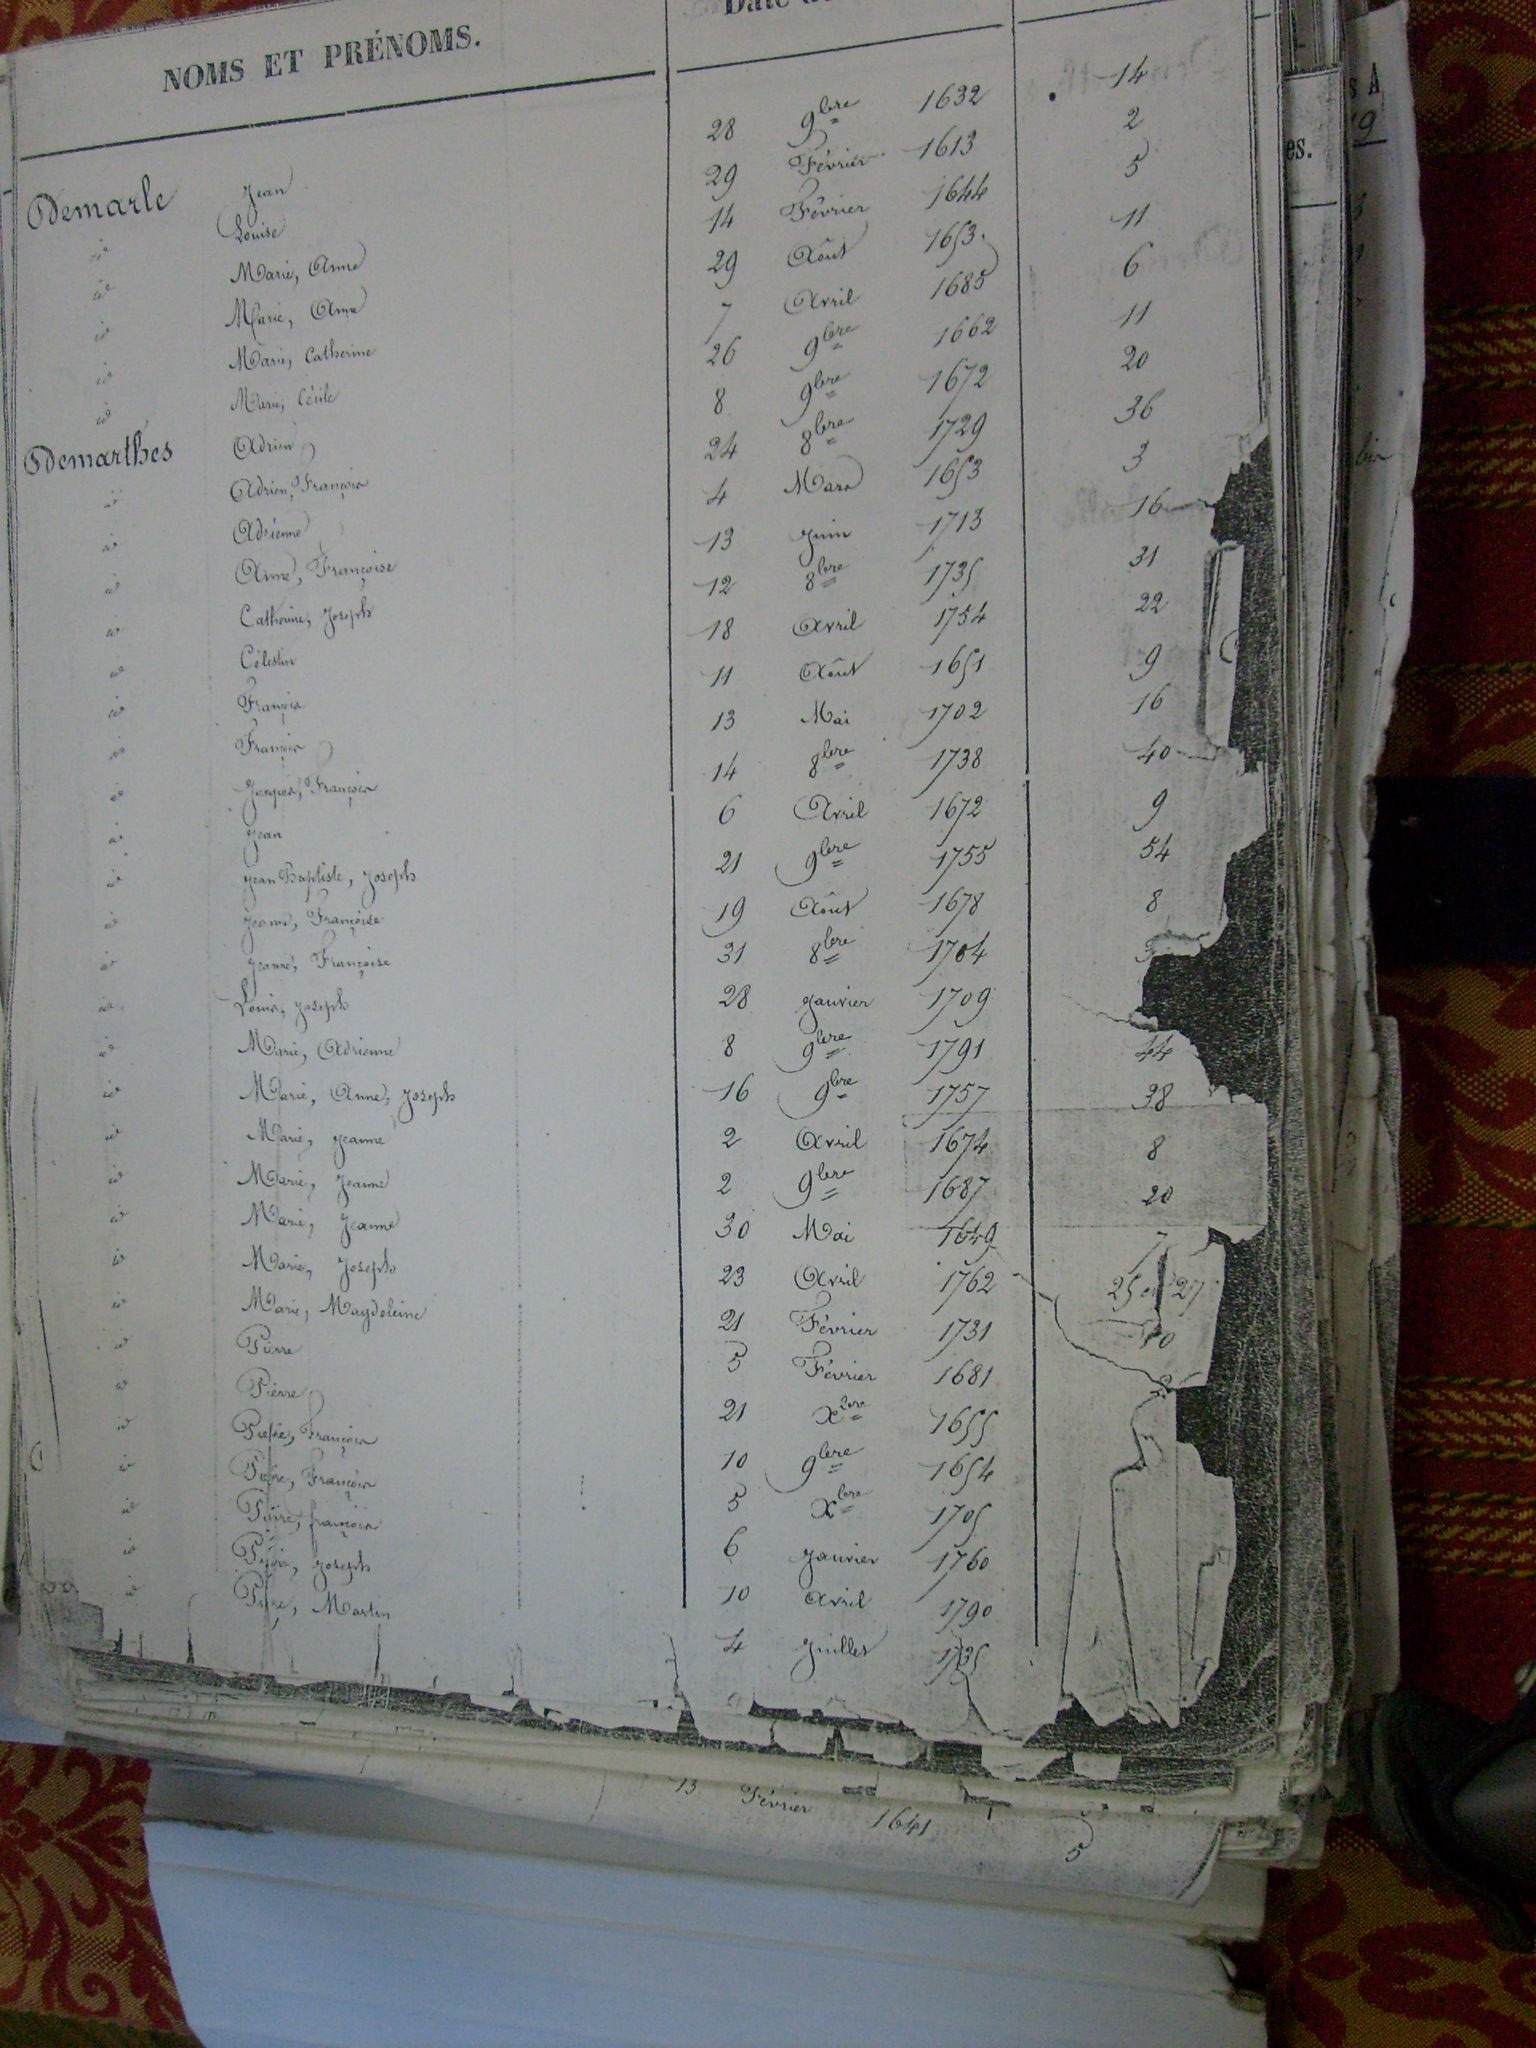 NOMS ET PRÉNOMS. Date
Demarle Jean 28 9bre 1632 14
id Louise 29 Février 1613 2
id Marie, Anne 14 Février 1644 5
id Marie, Anne 29 Août 1653 11
id Marie, Catherine 7 Avril 1685 6
id Marie, Cécile 26 9bre 1662 11
Demarthes Adrien 8 9bre 1672 20
id Adrien, François 24 8bre 1729 36
id Adrienne 4 Mars 1653 3
id Anne, Françoise 13 juin 1713 16
id Catherine, Joseph 12 8bre 1735 31
id Célestin 18 Avril 1754 22
id François 11 Août 1651 9
id François 13 Mai 1702 16
id Jacques, François 14 8bre 1738 40
id Jean 6 Avril 1672 9
id Jean Baptiste, Joseph 21 9bre 1755 54
id Jeanne, Françoise 19 Août 1678 8
id Jeanne, Françoise 31 8bre 1704
id Louis, Joseph 28 janvier 1709
id Marie, Adrienne 8 9bre 1791 44
id Marie, Anne, Joseph 16 9bre 1757 38
id Marie, Jeanne 2 Avril 1674 8
id Marie, Jeanne 2 9bre 1687 20
id Marie, Jeanne 30 Mai 1649 7
id Marie, Joseph 23 Avril 1762 25 et 27
id Marie, Magdeleine 21 Février 1731
id Pierre 5 Février 1681
id Pierre 21 Xbre 1655
id Pierre, François 10 9bre 1654
id Pierre, François 5 Xbre 1705
id Pierre, françois 6 janvier 1760
id Pierre, Joseph 10 avril 1790
id Pierre, Martin 4 juillet 1735
13 Février 1641 5
es.
s A
19
bis